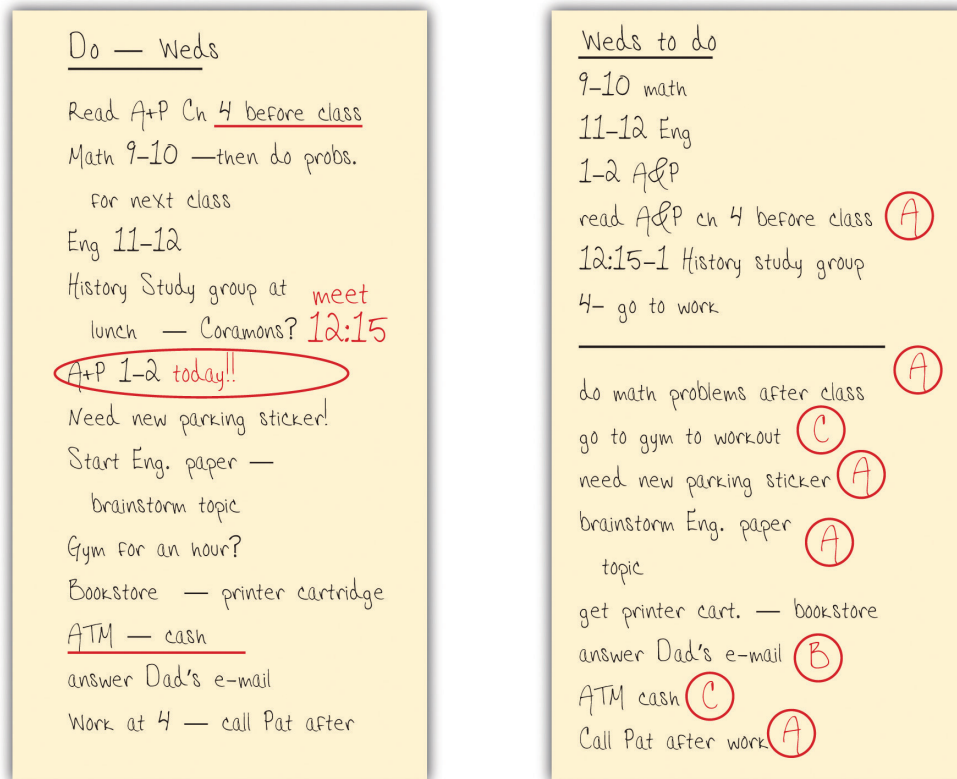 Do — Weds
Read A+P Ch 4 before class
Math 9–10 —then do probs.
for next class
Eng 11–12
History Study group at meet
lunch — Coramons? 12:15
A+P 1–2 today!!
Need new parking sticker!
Start Eng. paper —
brainstorm topic
Gym for an hour?
Bookstore — printer cartridge
ATM — cash
answer Dad's e-mail
Work at 4 — call Pat after
Weds to do
9–10 math
11–12 Eng
1–2 A&P
read A&P ch 4 before class A
12:15–1 History study group
4– go to work
do math problems after class A
go to gym to workout C
need new parking sticker A
brainstorm Eng. paper A
topic
get printer cart. — bookstore
answer Dad's e-mail B
ATM cash C
Call Pat after work A